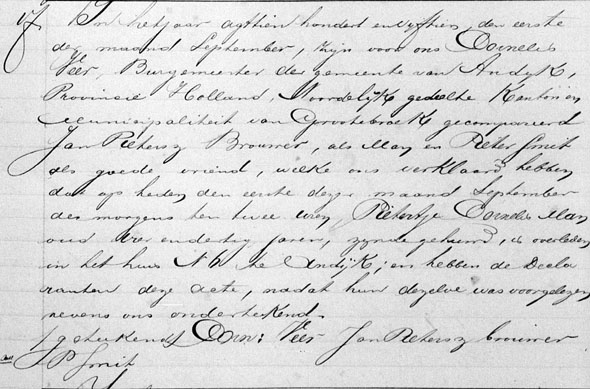 In het jaar agttien hondert en vyftien, den eerste
der maand September, zijn voor ons Cornelis
Veer, Burgemeester der gemeente van Andijk,
Provinsie Holland, Noordelijk gedeelte Kanton en
Municipaliteit van Grootebroek gecompareerd
Jan Pietersz Brouwer, als Man en Pieter Smit
als goede vriend, welke ons verklaard hebben
dat op heden den eerste dezer maand September
des morgens ten twee uren, Pietertje Cornelis Man
oud vier en dertig Jaren, zynde gehuwd, is overleden
in het huis N te Andijk; en hebben de Decla
ranten deze acte, nadat hun dezelve was voorgelezen
nevens ons ondertekend.
(getekend) Corn: Veer Jan Pietersz brouwer
P Smit